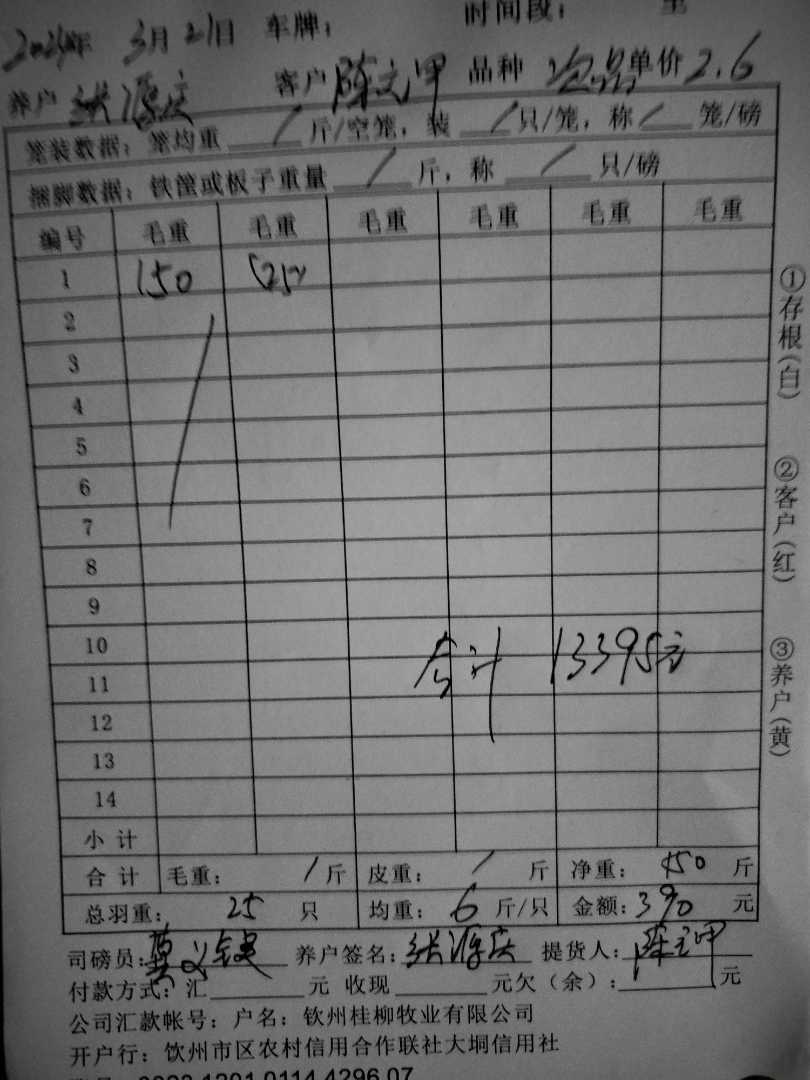 时间段：
2024年 3月21日 车牌：
养户 张源庆 客户 陈元甲 品种 次品 单价 2.6
笼装数据：笼均重 / 斤/空笼，装 / 只/笼，称 / 笼/磅
捆脚数据：铁筐或板子重量 / 斤，称 / 只/磅
编号 毛重 毛重 毛重 毛重 毛重 毛重
1 150 (25)
2
3
4
5
6
7
8
9
10
合计 13395元
11
12
13
14
小计
合计 毛重： / 斤 皮重： / 斤 净重： 150 斤
总羽重： 25 只 均重： 6 斤/只 金额：390 元
司磅员： 养户签名：张源庆 提货人：陈元甲
付款方式：汇 元 收现 元欠（余）： 元
公司汇款帐号：户名：钦州桂柳牧业有限公司
开户行：饮州市区农村信用合作联社大垌信用社
①存根(白)
②客户(红)
③养户(黄)